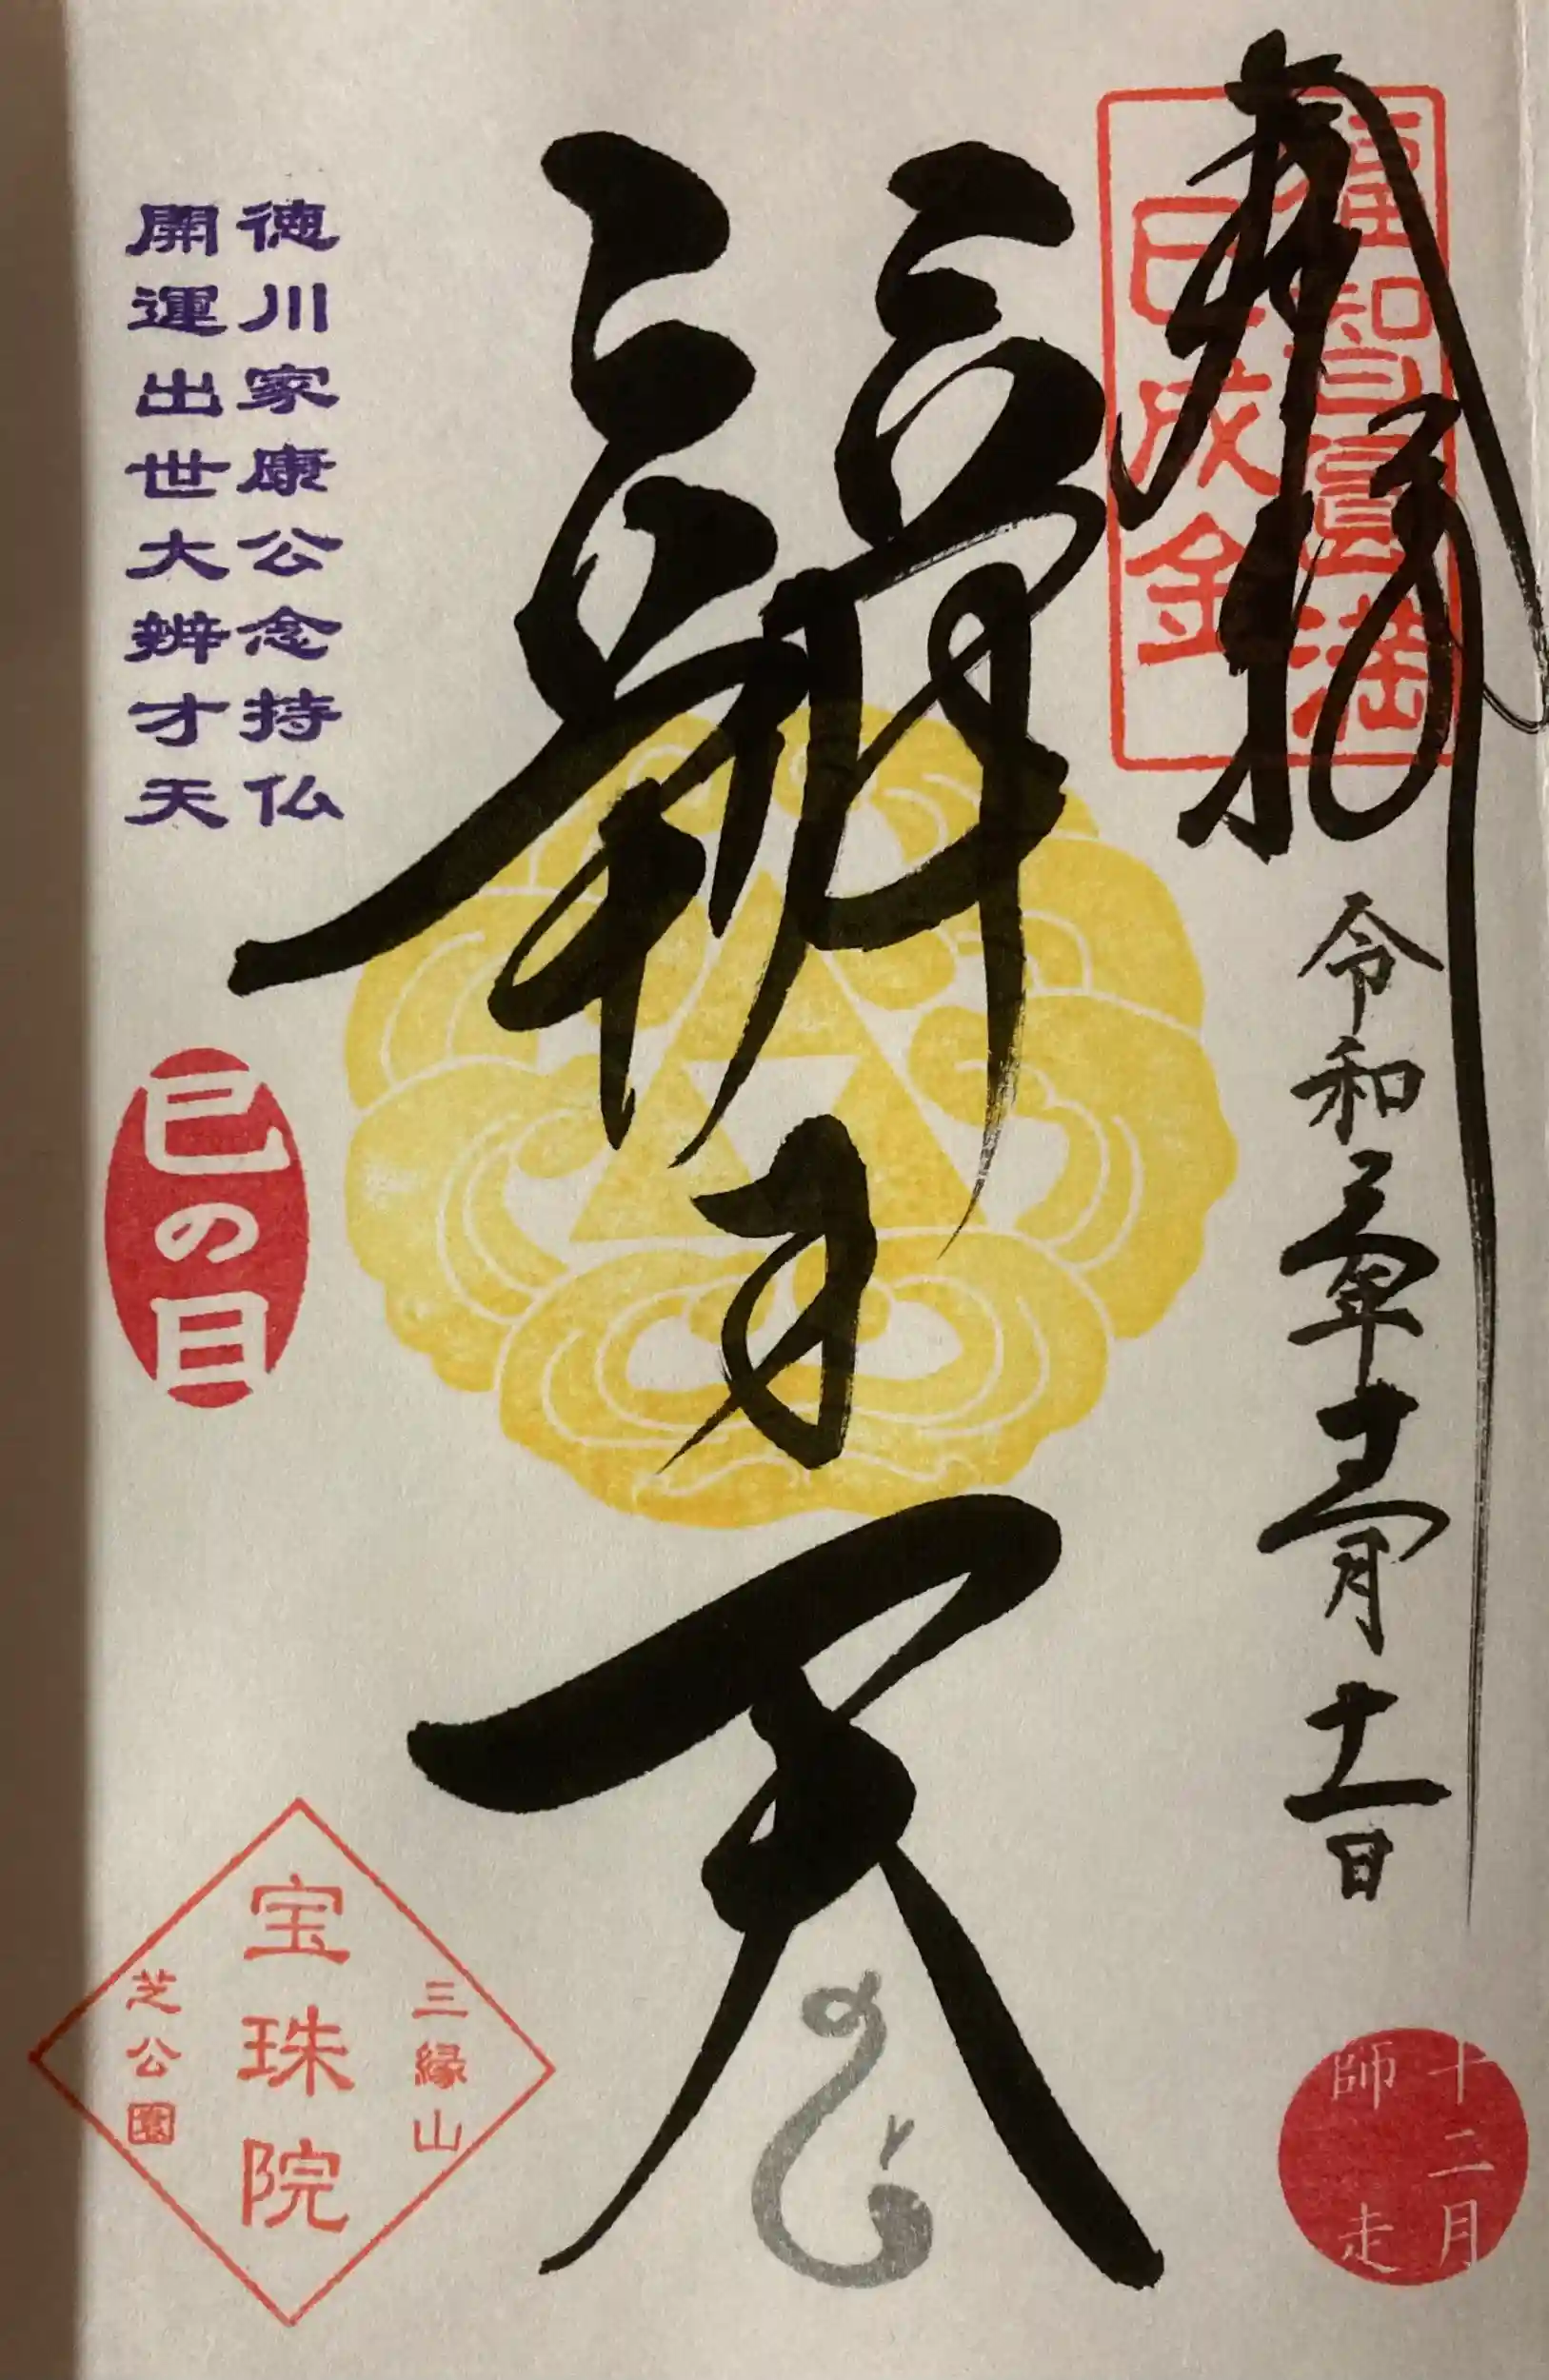 奉拝
福智圓満
巳成金
令和六年十二月十一日
十二月
師走
辨才天
徳川家康公念持仏
開運出世大辨才天
巳の日
三縁山
宝珠院
芝公園